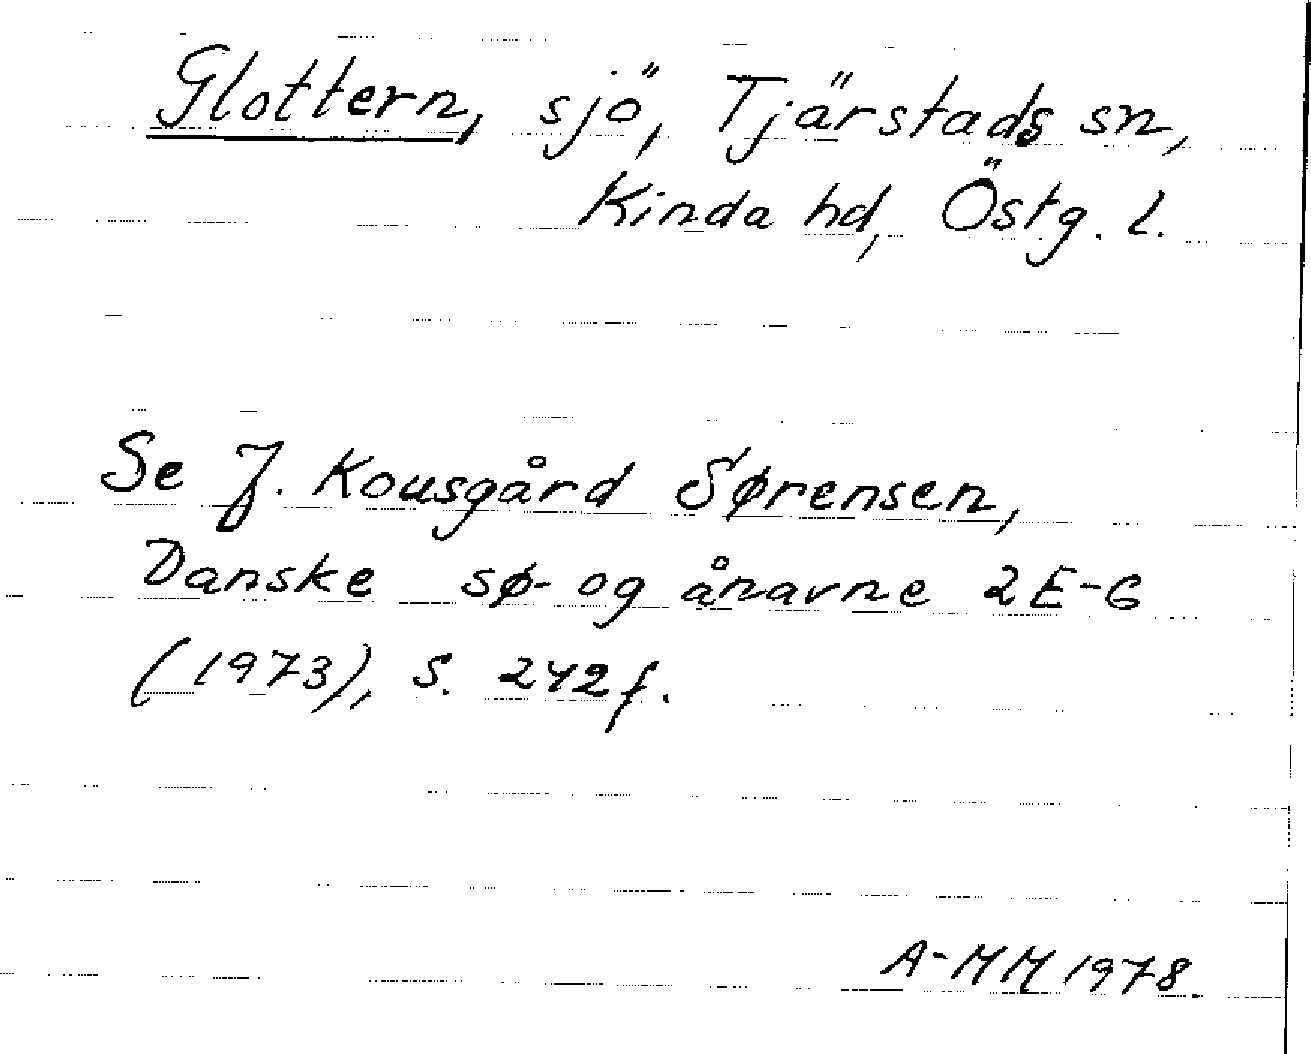 Glottern, sjö, Tjärstads sn,
Kinda hd, Östg. l.
Se J. Kousgård Sørensen,
Danske sø- og ånavne 2 E-G
(1973), s. 242 f.
A-MM 1978.